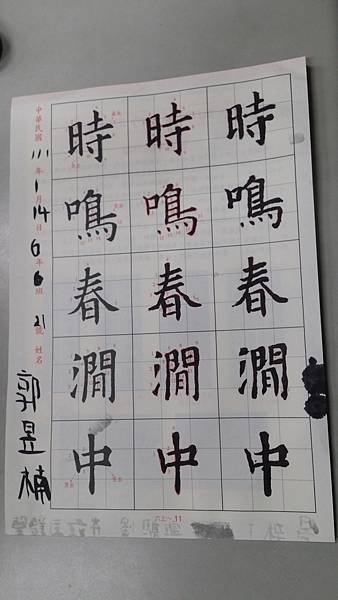 時鳴春澗中
時鳴春澗中
時鳴春澗中
中華民國111年1月14日6年6班21號 姓名 郭昱楠
六上~11